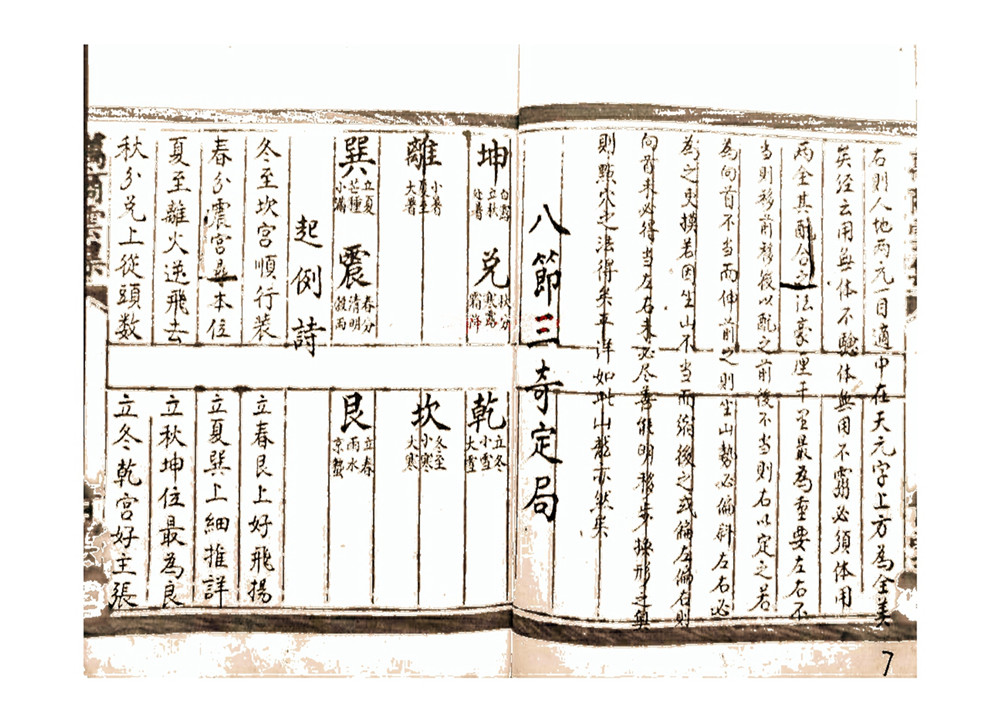 右則人地兩元一目適中在天元字上方為全美
矣經云用無体不驗体無用不灵必須体用
兩全其配合之法豪厘千里最為重要左右不
當則移前移後以配之前後不當則右以定之若
為向首不当而伸前之則坐山勢必偏斜左右必
為之更換若因坐山不当而縮後之或偏左偏右則
向首未必得当左右未必尽善能明移步換形之奧
則點穴之法得矣平洋如此山龍亦然矣
八節三奇定局
坤 白露 立秋 處暑
兌 秋分 寒露 霜降
乾 立冬 小雪 大雪
離 小暑 夏至 大暑
坎 冬至 小寒 大寒
巽 立夏 芒種 小滿
震 春分 清明 穀雨
艮 立春 雨水 京蟄
起例詩
冬至坎宮順行裝 立春艮上好飛揚
春分震宮尋本位 立夏巽上細推詳
夏至離火逆飛去 立秋坤位最為良
秋分兌上從頭數 立冬乾宮好主張
7